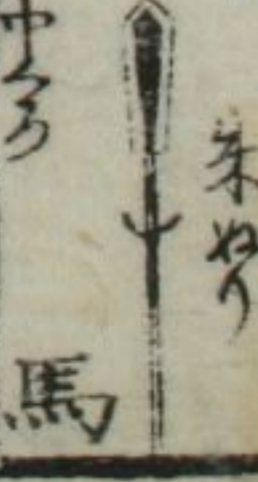 朱ぬり
中くろ
馬